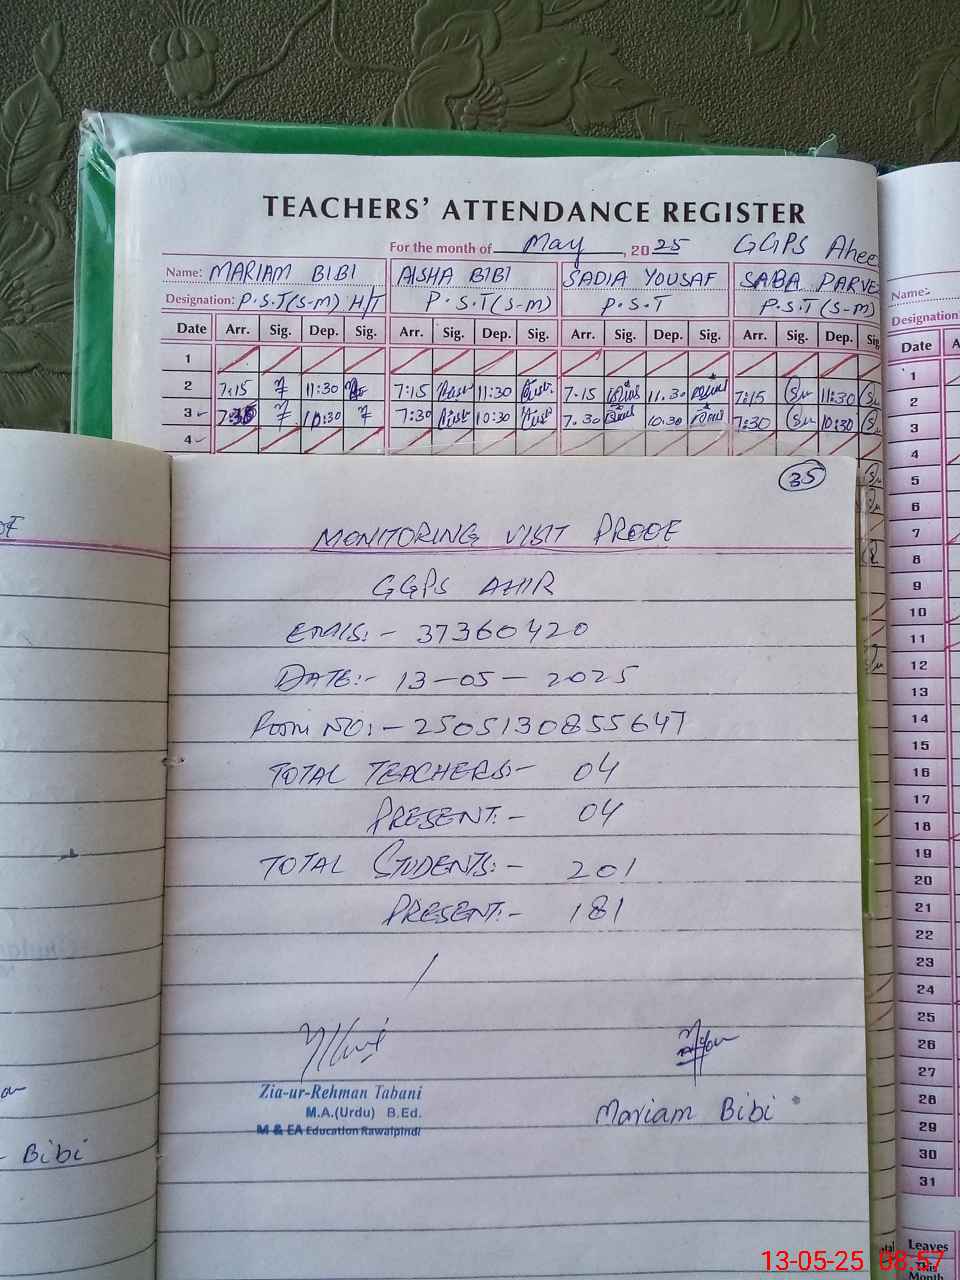 TEACHERS' ATTENDANCE REGISTER
For the month of May, 2025 GGPS Ahee
Name: MARIAM BIBI AISHA BIBI SADIA YOUSAF SABA PARVE
Designation: P.S.T(S-M) H/T P.S.T(S-M) P.S.T P.S.T(S-M)
Date Arr. Sig. Dep. Sig. Arr. Sig. Dep. Sig. Arr. Sig. Dep. Sig. Arr. Sig. Dep. Sig
1
2 7:15 11:30 7:15 11:30 7.15 11.30 7:15 11:30
3 10:30 7:30 10:30 7.30 10.30 7:30 10:30
4
Name:-
Designation:
Date A
1
2
3
4
5
6
7
8
9
10
11
12
13
14
15
16
17
18
19
20
21
22
23
24
25
26
27
28
29
30
31
Leaves
This
Month
35
MONITORING VISIT PROOF
GGPS AHIR
EMIS:- 37360420
DATE:- 13-05-2025
FORM NO:- 2505130855647
TOTAL TEACHERS:- 04
PRESENT:- 04
TOTAL STUDENTS:- 201
PRESENT:- 181
Zia-ur-Rehman Tabani
M.A.(Urdu) B.Ed.
M & EA Education Rawalpindi
Mariam Bibi
Bibi
13-05-25 08:57